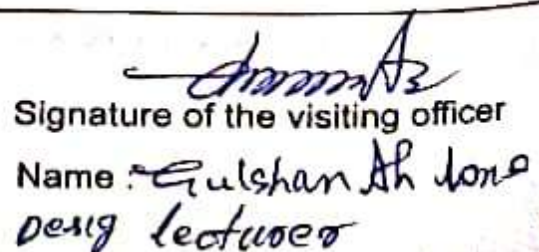 Signature of the visiting officer
Name : Gulshan Ah lone
Desig lecturer